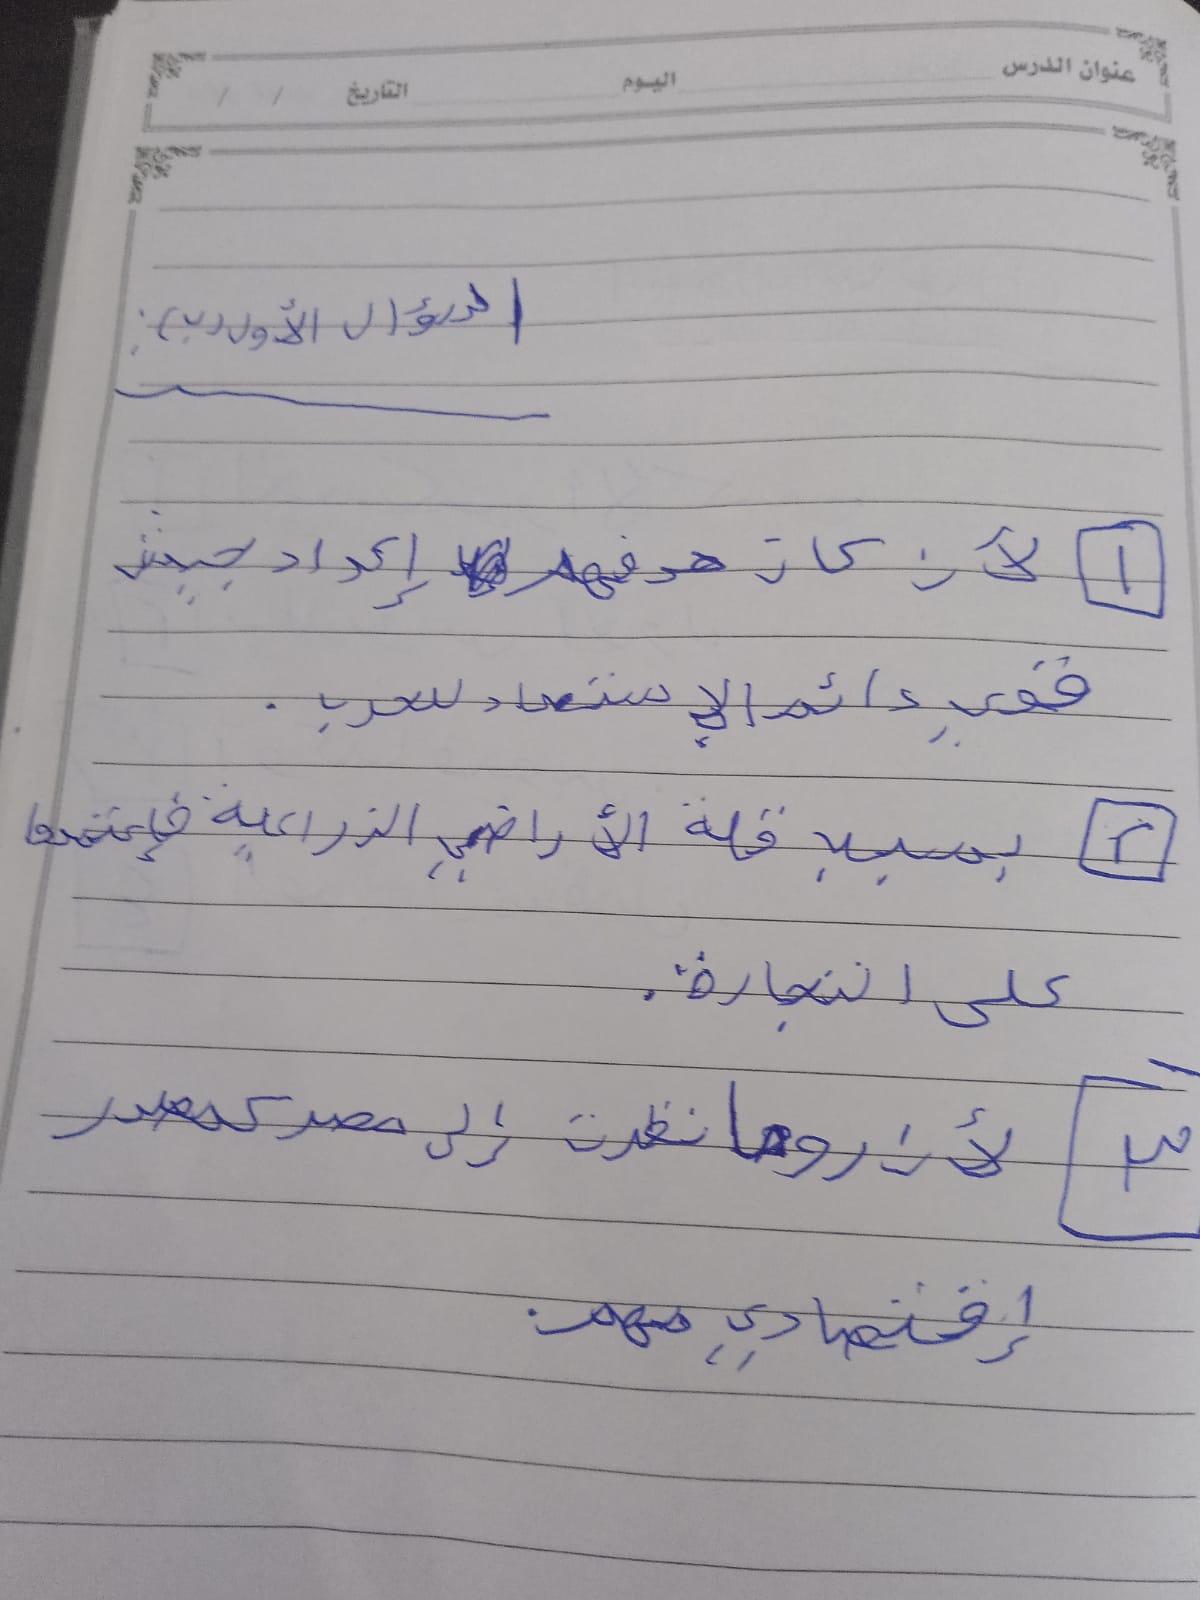 عنوان الدرس اليوم التاريخ / /
السؤال الأول (ب):
١ لأن كان هدفهم إعداد جيش
قوي دائم الإستعداد للحرب .
٢ بسبب قلة الأراضي الزراعية فإعتمدوا
على التجارة .
٣ لأن روما نظرت إلى مصر كمصدر
إقتصادي مهم .